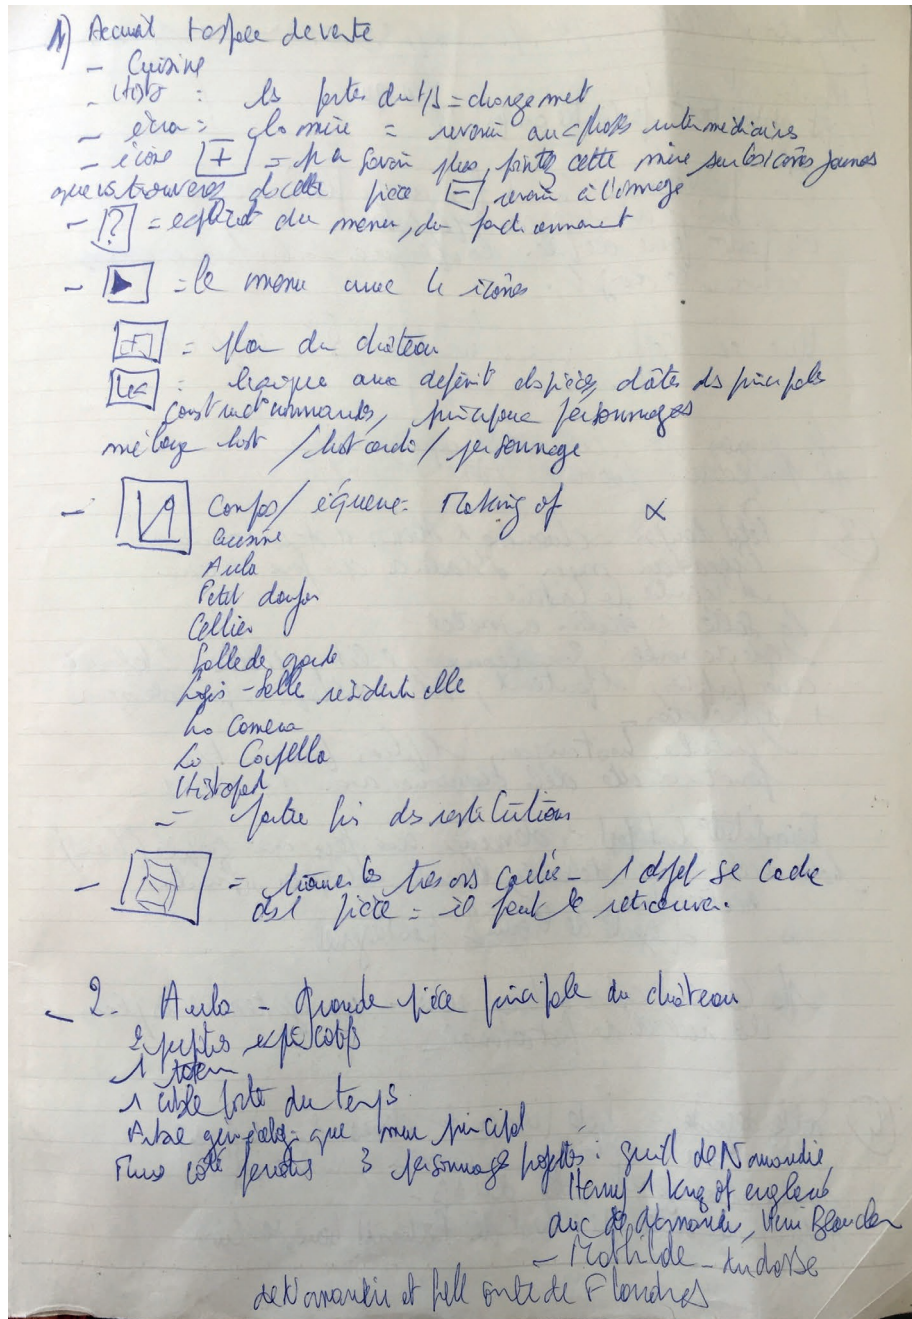 1) Accueil + espace de vente
- Cuisine
- : les portes du tps = changement
- écran = = revenir aux phases intermédiaires
- icône + = pr savoir plus, pointez cette sur les icônes jaunes
que vs trouverez ds cette pièce - revenir à l'image
- ? = explicat du menu, du fonctionnement
- ▶ = le menu avec le icônes
= plan du château
= aux défenit ds pièces, dates ds principales
constructions, principaux personnages
mélange hist / / personnage
- Making of α
Cuisine
Aula
Petit donjon
Cellier
Salle de garde
Logis - Salle résidentielle
La Camera
La Capella
Histopad
- des restitutions
- = trouver les trésors cachés - 1 objet se cache
ds 1 pièce = il faut le retrouver.
- 2. Aula - grande pièce principale du château
2 pupitres explicatifs
1 totem
1 cible porte du temps
Arbre généalogique mur principal
côté 3 personnages projetés : guill de Normandie,
Henry 1 king of england
duc de Normandie, Henri Beauclerc
- Mathilde - duchesse
de Normandie et fille comte de Flandres